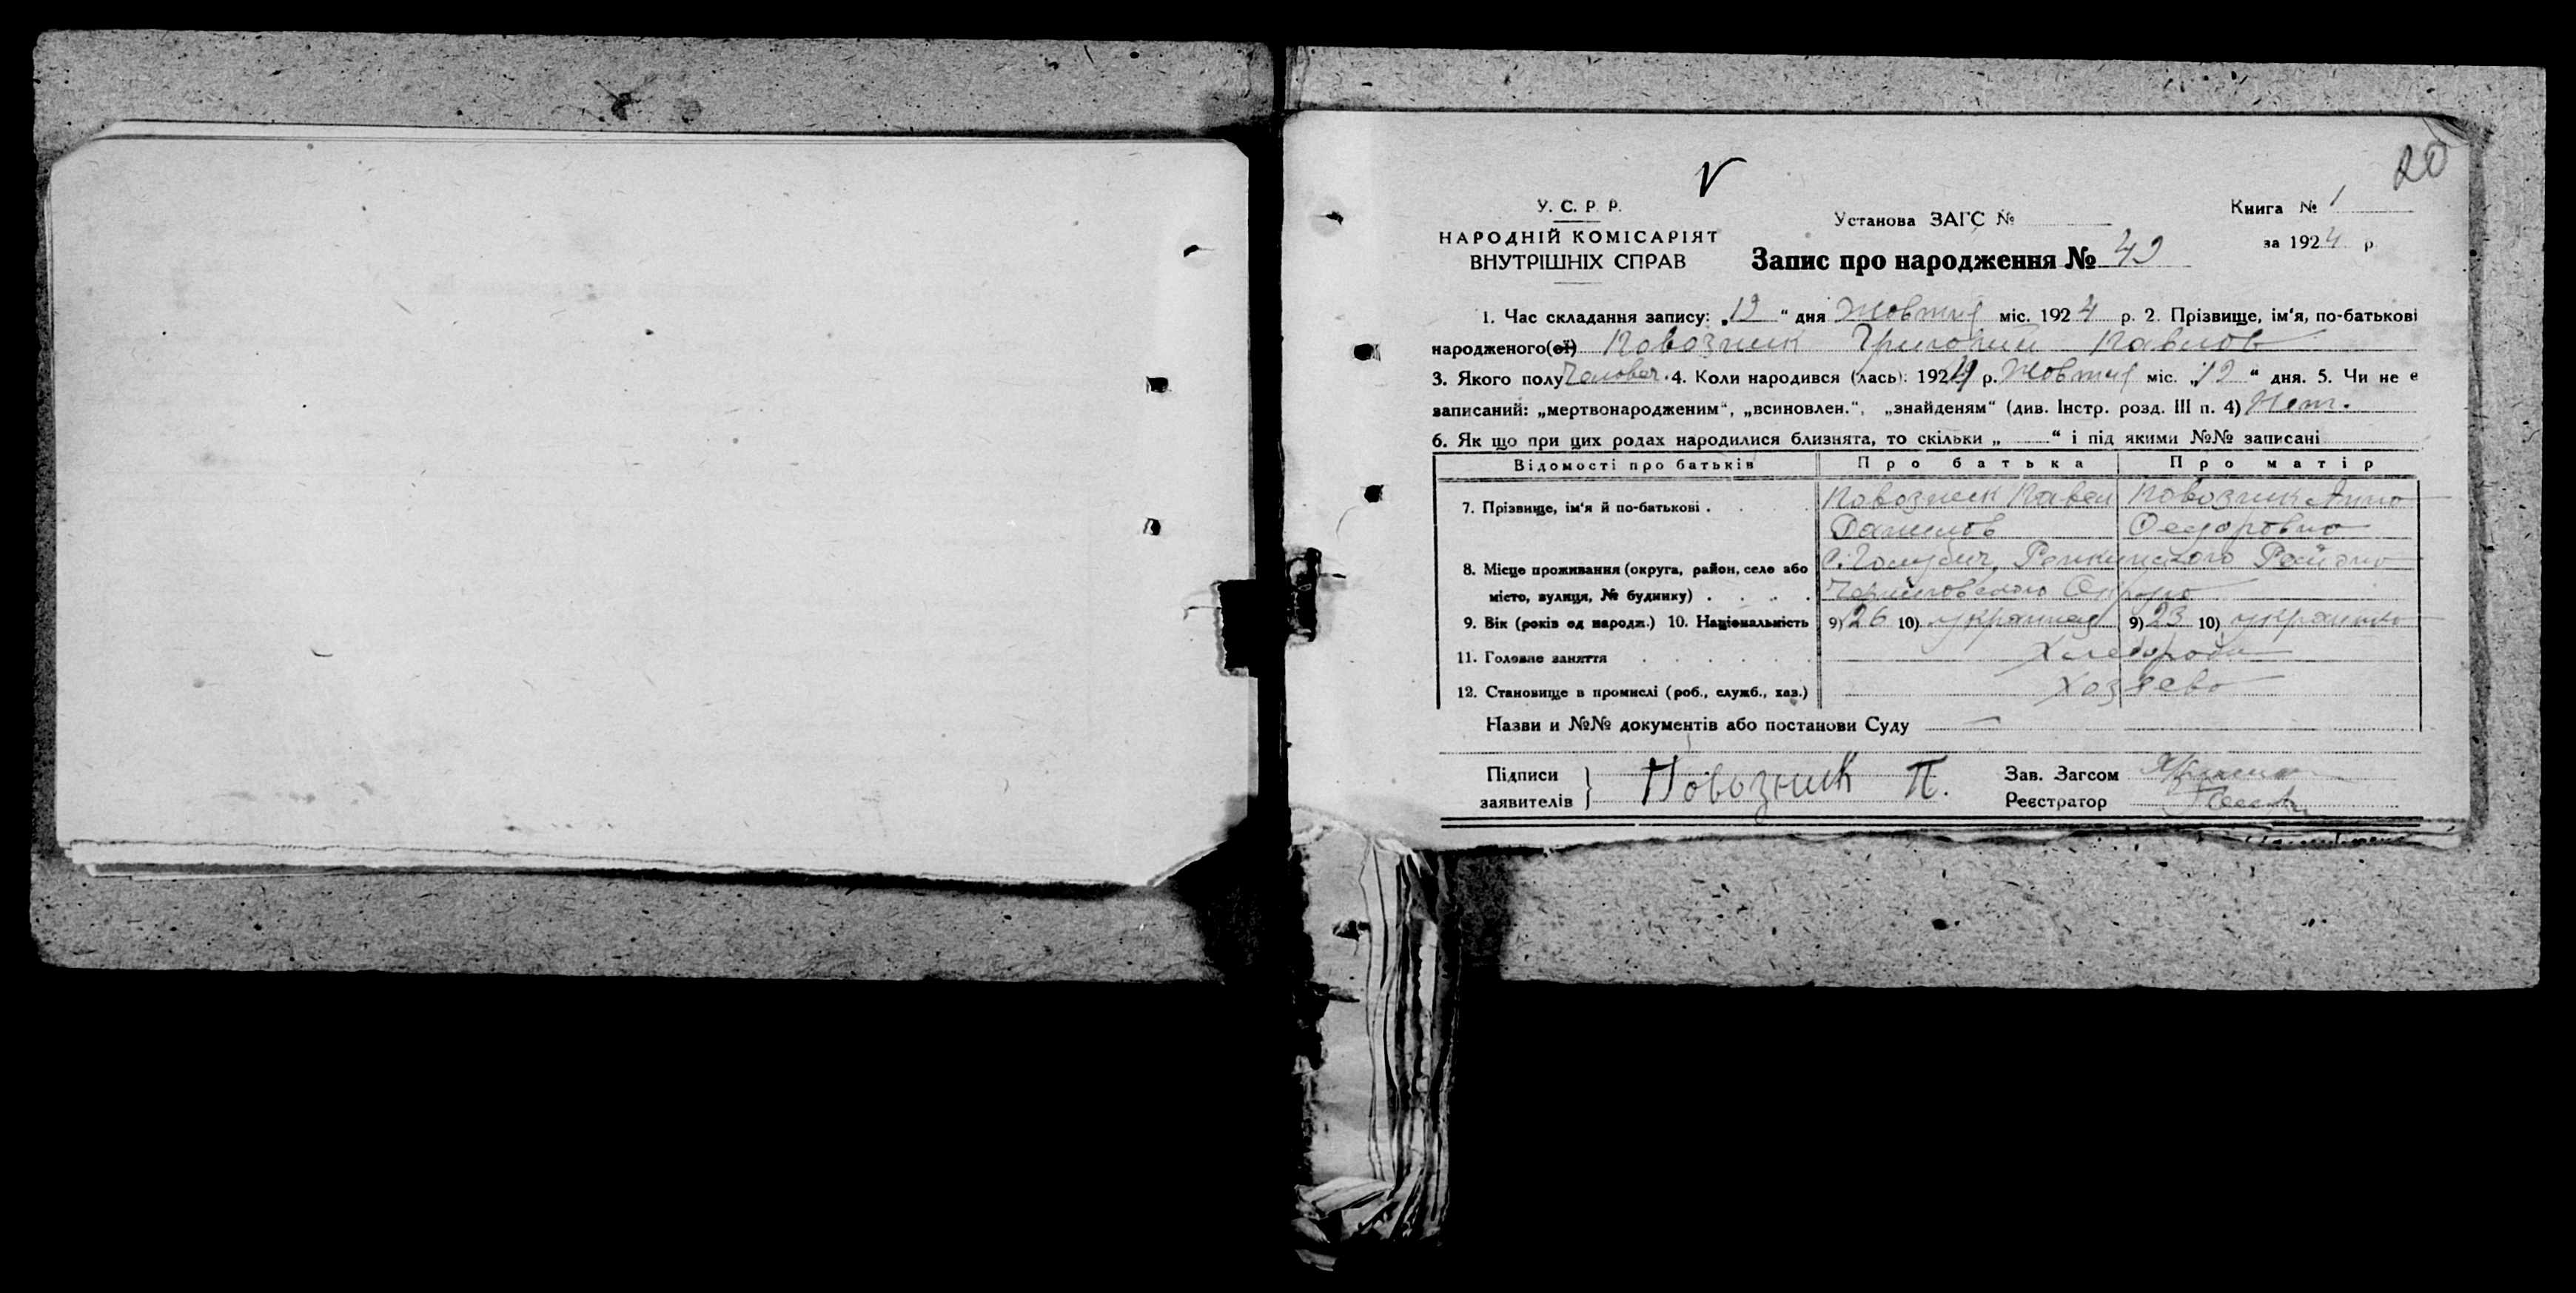 20
V
У. С. Р. Р.
НАРОДНІЙ КОМІСАРІЯТ
ВНУТРІШНІХ СПРАВ
Установа ЗАГС №
Книга № 1
за 1924 р.
Запис про народження № 49
1. Час складання запису: „12“ дня Жовтня міс. 1924 р. 2. Прізвище, ім'я, по-батькові
народженого(ої) Повозник Григорий Павлов
3. Якого полу Человеч. 4. Коли народився (лась): 1924 р. Жовтня міс. „12“ дня. 5. Чи не є
записаний: „мертвонародженим“, „всиновлен.“, „знайденям“ (див. Інстр. розд. III п. 4) Нет.
6. Як що при цих родах народилися близнята, то скільки „ “ і під якими №№ записані
Відомості про батьків Про батька Про матір
7. Прізвище, ім'я й по-батькові . Повозник Павел Повозник Анна
Данилов Федоровна
8. Місце проживання (округа, район, село або с. Района
місто, вулиця, № будинку) . . . . Черниговского Округа
9. Вік (років од народж.) 10. Національність 9) 26 10) украинец 9) 23 10) украинка
11. Головне заняття . . . . . . Хлебороб
12. Становище в промислі (роб., служб., хаз.) Хозяева
Назви и №№ документів або постанови Суду —
Підписи
заявителів } Повозник П.
Зав. Загсом
Реєстратор